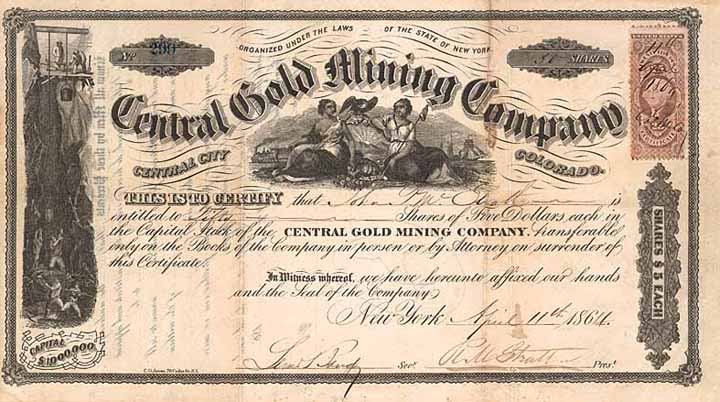 ORGANIZED UNDER THE LAWS OF THE STATE OF NEW YORK
No 290
50 SHARES
Central Gold Mining Company
CENTRAL CITY COLORADO.
THIS IS TO CERTIFY that John is
entitled to Fifty Shares of Five Dollars each in
the Capital Stock of the CENTRAL GOLD MINING COMPANY. Transferable
only on the Books of the Company in person or by Attorney on surrender of
this Certificate.
In Witness whereof, we have hereunto affixed our hands
and the Seal of the Company
New York April 11th 1864.
Secy. Prest.
CAPITAL
$1000.000
SHARES $5 EACH
CERTIFICATE